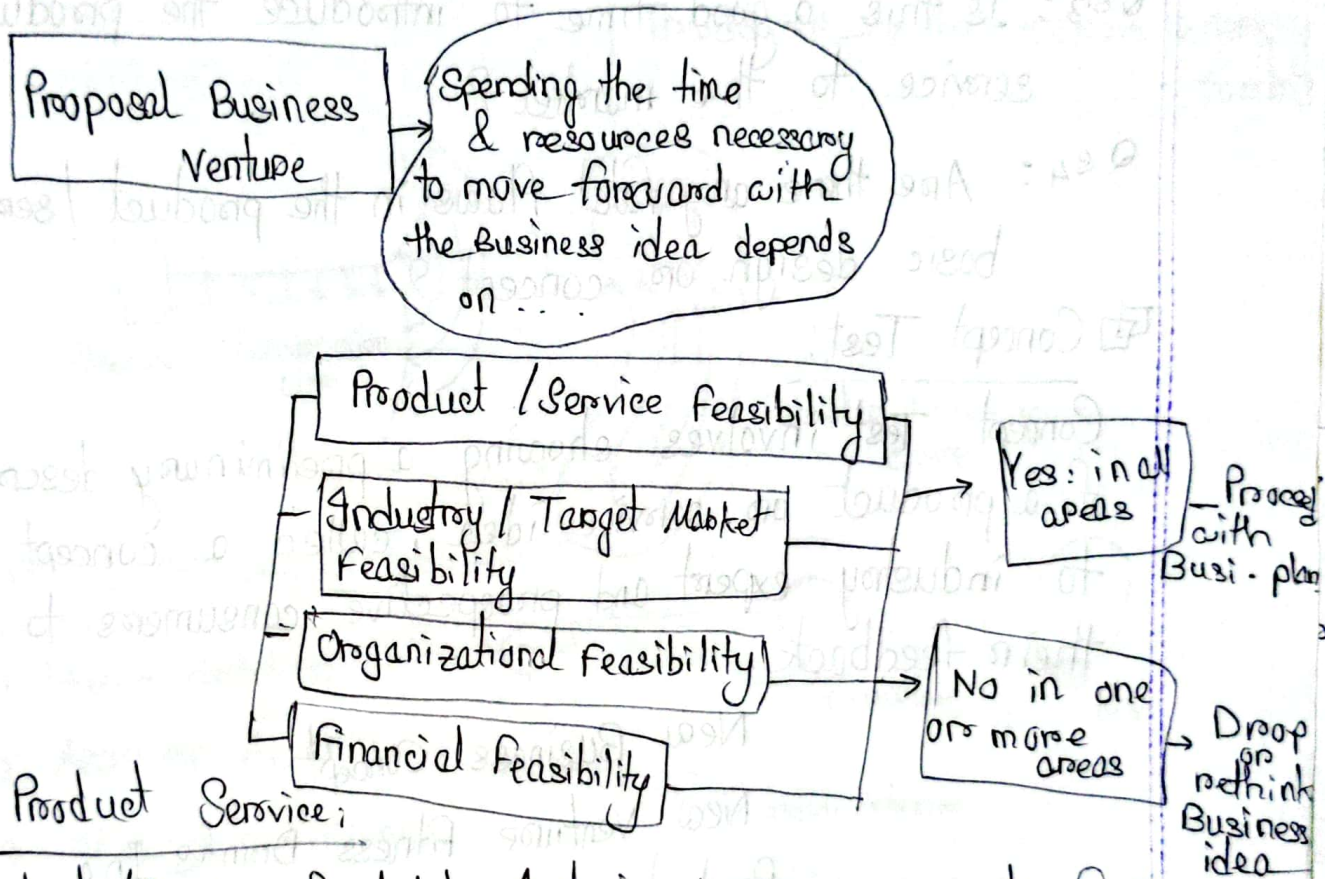 Proposal Business
Venture
Spending the time
& resources necessary
to move forward with
the Business idea depends
on ....
Product / Service Feasibility
Industry / Target Market
Feasibility
Organizational Feasibility
Financial Feasibility
Yes: in all
areas
Proceed
with
Busi. plan
No in one
or more
areas
Drop
or
rethink
Business
idea
Product Service;